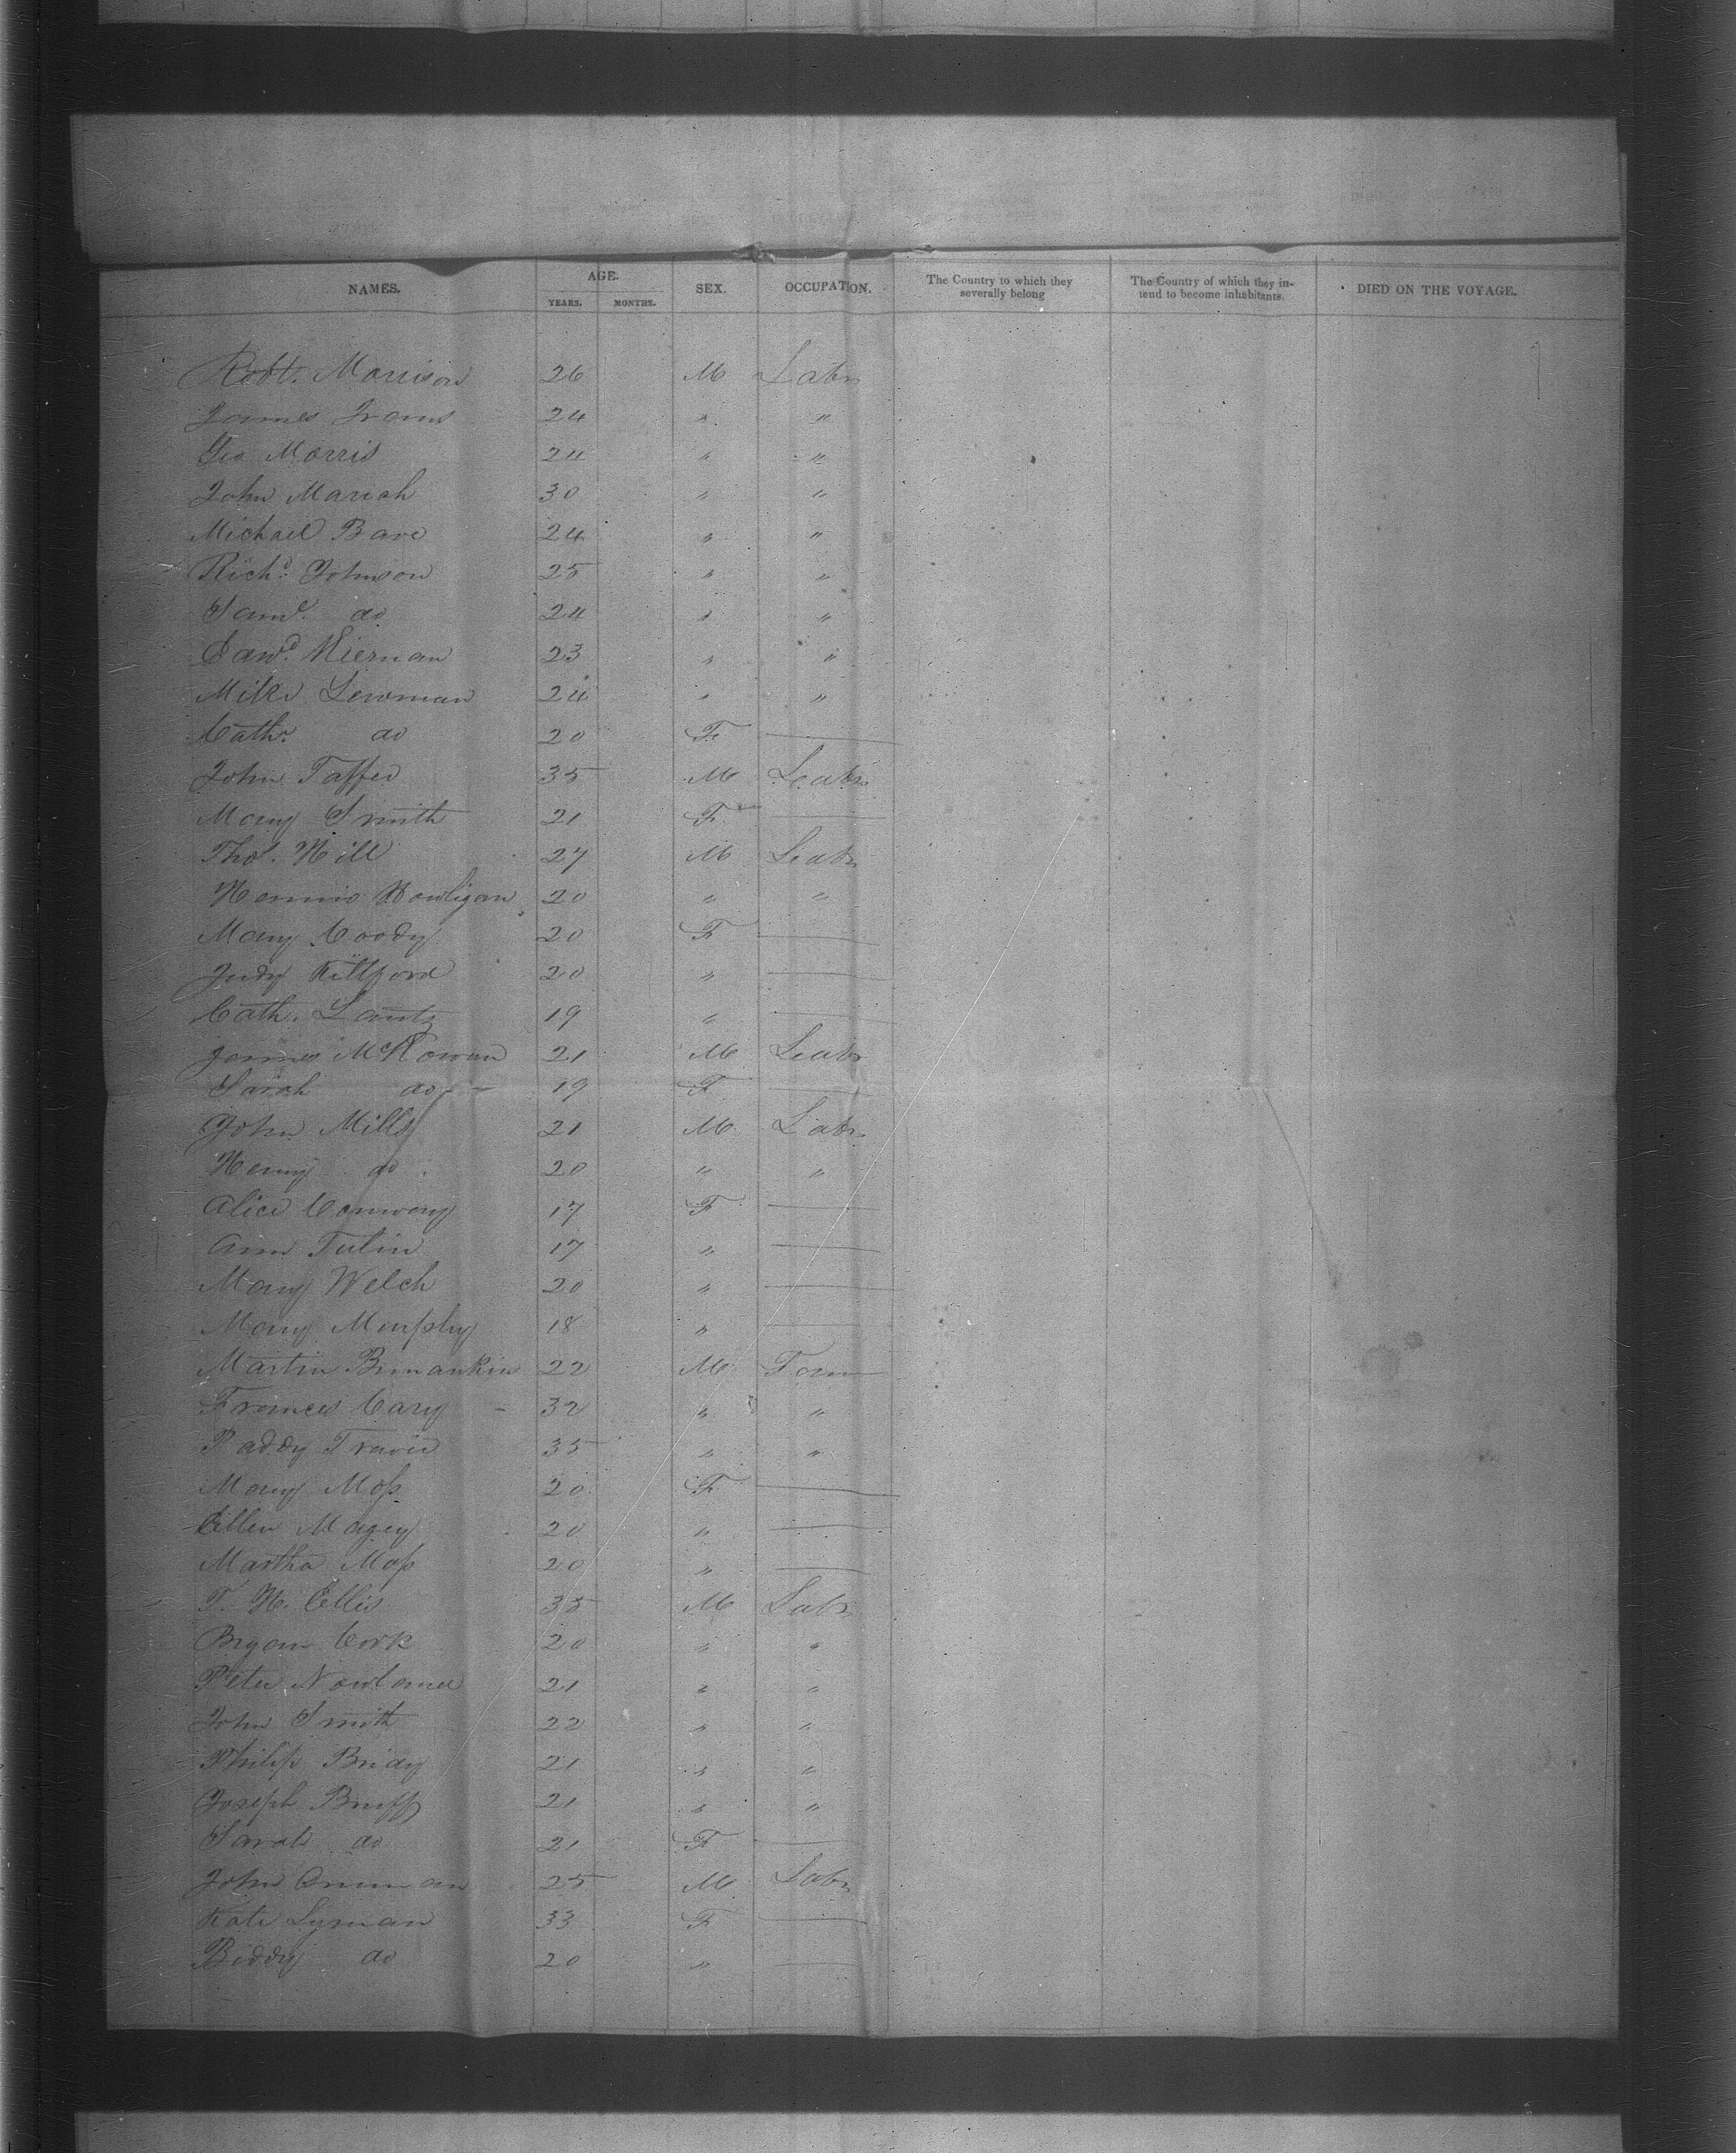 NAMES. AGE. YEARS. MONTHS. SEX. OCCUPATION. The Country to which they severally belong The Country of which they intend to become inhabitants. DIED ON THE VOYAGE.
Robt. Morrison 26 M Labr
James Irons 24 " "
Geo Morris 24 " "
John Marich 30 " "
Michael Bare 24 " "
Richd. Johnson 25 " "
Saml. do 24 " "
Edwd. Kiernan 23 " "
Mike Lewman 24 " "
Cathr. do 20 F —
John Taffee 35 M Labr
Mary Smith 21 F —
Thos. Hill 27 M Labr
20 " "
Mary Coody 20 F —
Judy Killford 20 " —
Cath. Lantz 19 " —
James McKowan 21 M Labr
Sarah do 19 F —
John Mills 21 M Labr
Henry do 20 " "
Alice Conway 17 F —
Ann Tulin 17 " —
Mary Welch 20 " —
Mary Murphy 18 " —
Martin 22 M Farm
Frances Cary 32 " "
Paddy Travis 35 " "
Mary Moss 20 F —
Ellen Magey 20 " —
Martha Moss 20 " —
T. H. Ellis 35 M Labr
Bryan Cork 20 " "
Peter 21 " "
John Smith 22 " "
Philip Briday 21 " "
Joseph Bruff 21 " "
Sarah do 21 F —
John 25 M Labr
Kate Lyman 33 F —
Biddy do 20 " —